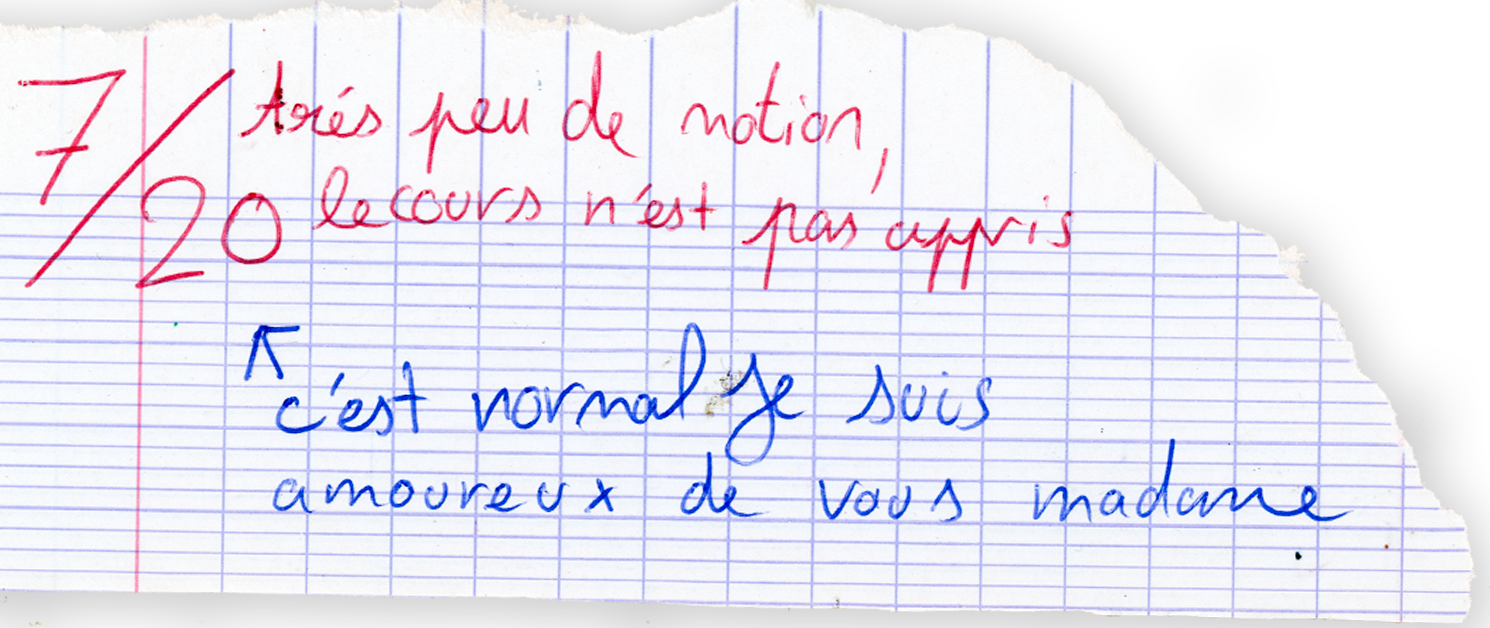 7/20 trés peu de notion,
le cours n'est pas appris
↖ c'est normal je suis
amoureux de vous madame